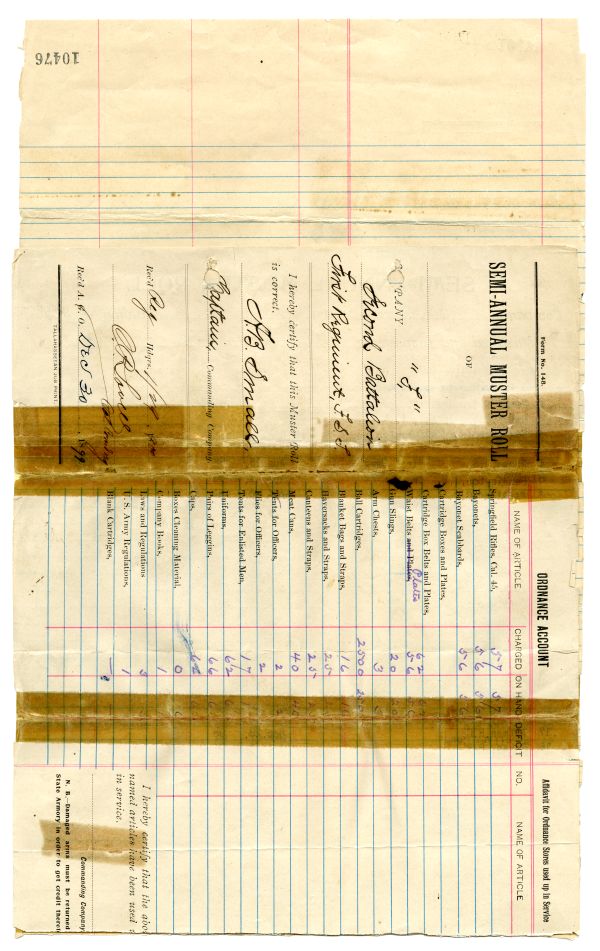 10476
Form No. 148.
SEMI-ANNUAL MUSTER ROLL
OF
COMPANY "F,"
Second Battalion
First Regiment, F. S. T.
I hereby certify that this Muster Roll
is correct.
A. B. Small,
Captain, Commanding Company
Rec'd Reg. Hdqrs.
Rec'd A. G. O. Dec 30 1899
TALLAHASSEEAN JOB PRINT.
ORDNANCE ACCOUNT
NAME OF ARTICLE CHARGED ON HAND DEFICIT
Springfield Rifles, Cal. 45, 57 57
Bayonets, 56 56
Bayonet Scabbards, 56 56
Cartridge Boxes and Plates,
Cartridge Box Belts and Plates, 62
Waist Belts and Plates, Plates 56
Gun Slings, 20 20
Arm Chests, 3 3
Ball Cartridges, 2500
Blanket Bags and Straps, 16
Haversacks and Straps, 25
Canteens and Straps, 25
Meat Cans, 40 40
Tents for Officers, 2
Flies for Officers, 2
Tents for Enlisted Men, 17
Uniforms, 62
Pairs of Leggins, 66
Caps, 62
Boxes Cleaning Material, 0
Company Books, 1
Laws and Regulations 5
U. S. Army Regulations, 1
Blank Cartridges,
Affidavit for Ordnance Stores used up in Service
NO. NAME OF ARTICLE
I hereby certify that the above
named articles have been used
in service.
Commanding Company
N. B.—Damaged arms must be returned
State Armory in order to get credit